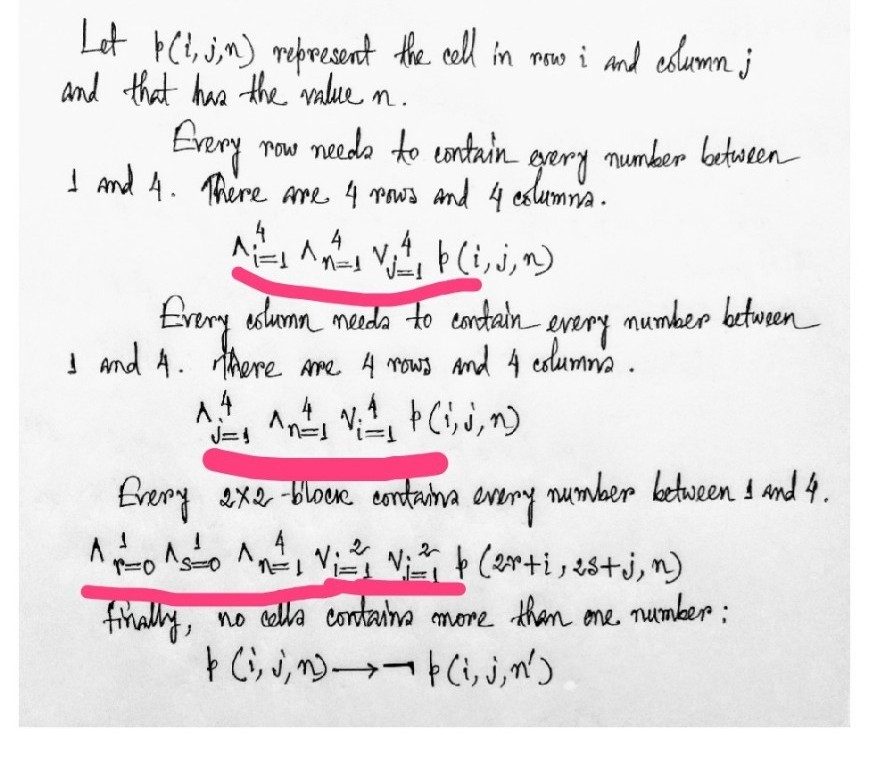 Let p(i,j,n) represent the cell in row i and column j
and that has the value n.
Every row needs to contain every number between
1 and 4. There are 4 rows and 4 columns.
∧⁴ᵢ₌₁ ∧⁴ₙ₌₁ ∨⁴ⱼ₌₁ p(i,j,n)
Every column needs to contain every number between
1 and 4. There are 4 rows and 4 columns.
∧⁴ⱼ₌₁ ∧⁴ₙ₌₁ ∨⁴ᵢ₌₁ p(i,j,n)
Every 2×2-block contains every number between 1 and 4.
∧¹ᵣ₌₀ ∧¹ₛ₌₀ ∧⁴ₙ₌₁ ∨²ᵢ₌₁ ∨²ⱼ₌₁ p(2r+i, 2s+j, n)
finally, no cells contains more than one number:
p(i,j,n) → ¬p(i,j,n')